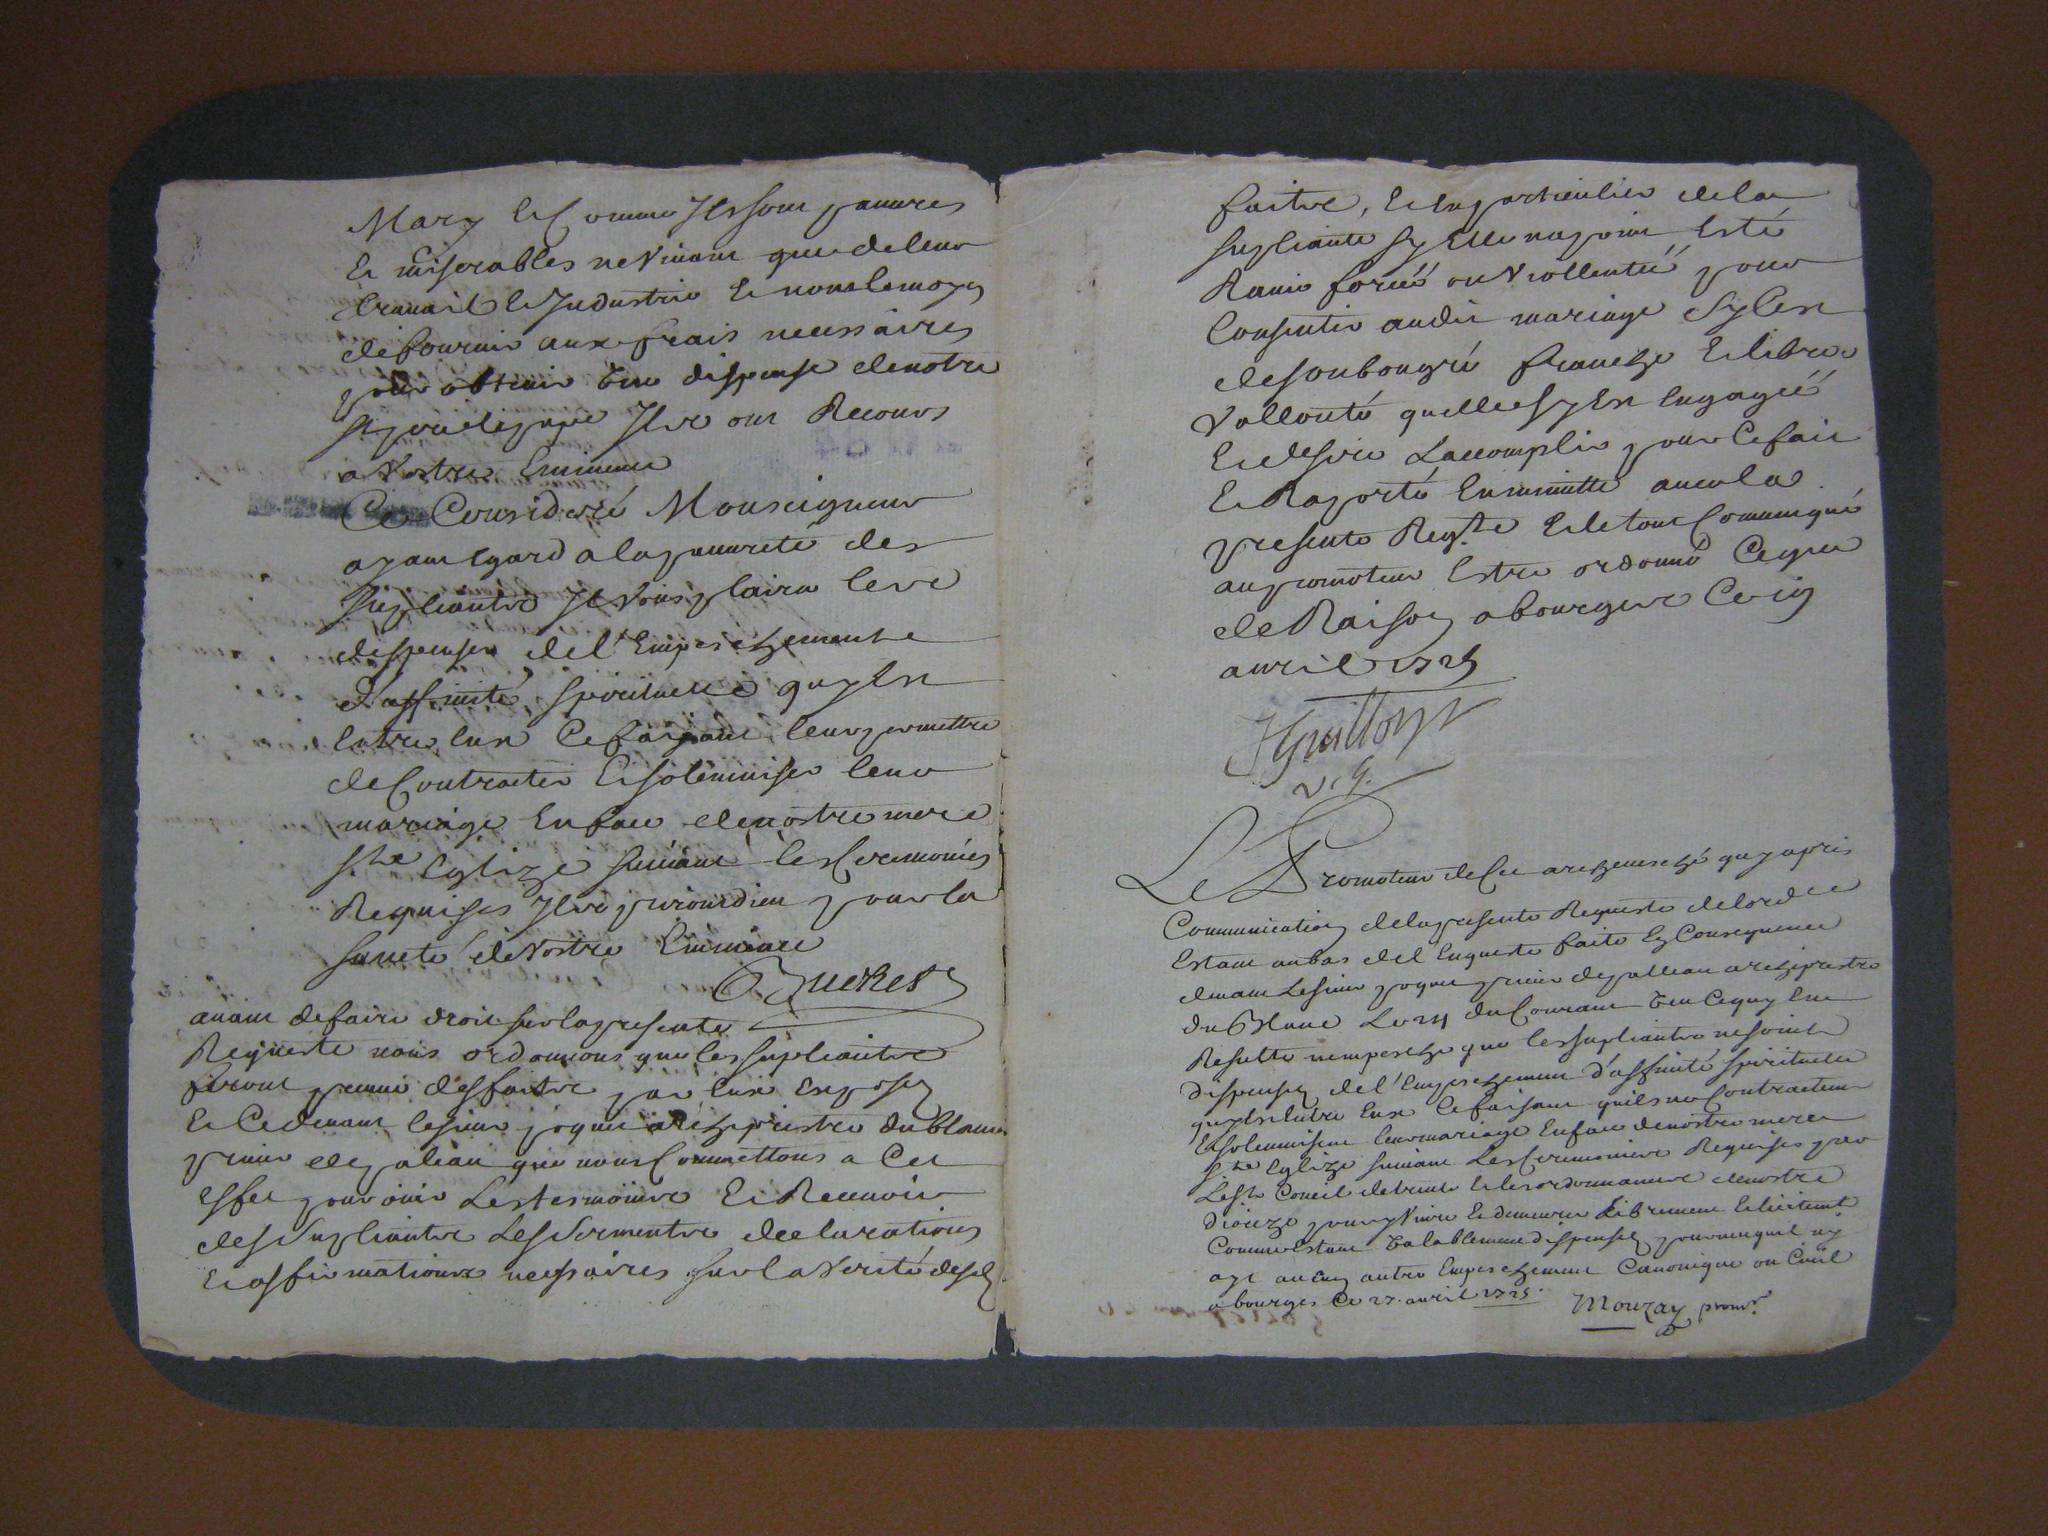 Mary Et Comme Ils sont pauvres
Et miserables ne Vivant que de leur
travail et Industrie Et nont le moyen
de fournir aux frais necessaires
pour obtenir Une dispense de notre
St pere le pape Ils ont Recours
a Vostre Eminence
Ce Consideré Monseigneur
ayant Egard a la pauvreté des
supliants Il Vous plaira les
dispenser de l'Empeschement
d'affinité spirituelle quy Est
Entre Eux Ce faisant leur permettre
de Contracter Et solemniser leur
mariage En face de nostre mere
Ste Eglize suivant les Ceremonies
Requises Ils priront dieu pour la
santé de Vostre Eminence
avant de faire droit sur la presente
Requeste nous ordonnons que les supliants
feront preuve des faits par Eux Exposez
Et Ce devant le sieur poquet archiprestre du blanc
prieur de paleau que nous Commettons a Cet
effet pour ouir Les tesmoins Et Recevoir
des Supliants Les Serments declarations
Et affirmations necessaires sur la Verité desd
faits, Et En particulier de la
supliante sy Elle na point Esté
Ravie forcée ou Viollentée pour
Consentir audit mariage sy C'est
de son bon gré franche Et libre
Vollonté quelle sy Est Engagée
Et desire Laccomplir pour Ce fait
Et Raporté En minutte avec la
presente Reqte Et le tout Communiqué
au promoteur Estre ordonné Ce que
de Raison a bourges Ce
avril 1725
v. g.
Le Promoteur de Cet archevesché quy a pris
Communication de la presente Requeste de lord
Estant au bas de l'Enqueste faite En Consequence
devant Le sieur poquet prieur de palleau archiprestre
du Blanc Le 24 du Courant Veu Ce quy En
Resulte n'empesche que les supliants ne soient
dispensez de l'Empeschement d'affinité spirituelle
quy Est Entre Eux Ce faisant quils ne Contractent
Et solemnisent leur mariage En face de nostre mere
Ste Eglize suivant Les Ceremonies Requises par
Le St Concil de trente Et les ordonnances de nostre
dioceze pour y Vivre Et demeurer Librement Et licitemt
Comme Estant Valablement dispensez pourveu quil ny
ayt aucun autre Empeschement Canonique ou Civil
a bourges Ce 27. avril 1725.
Mouzay promr.